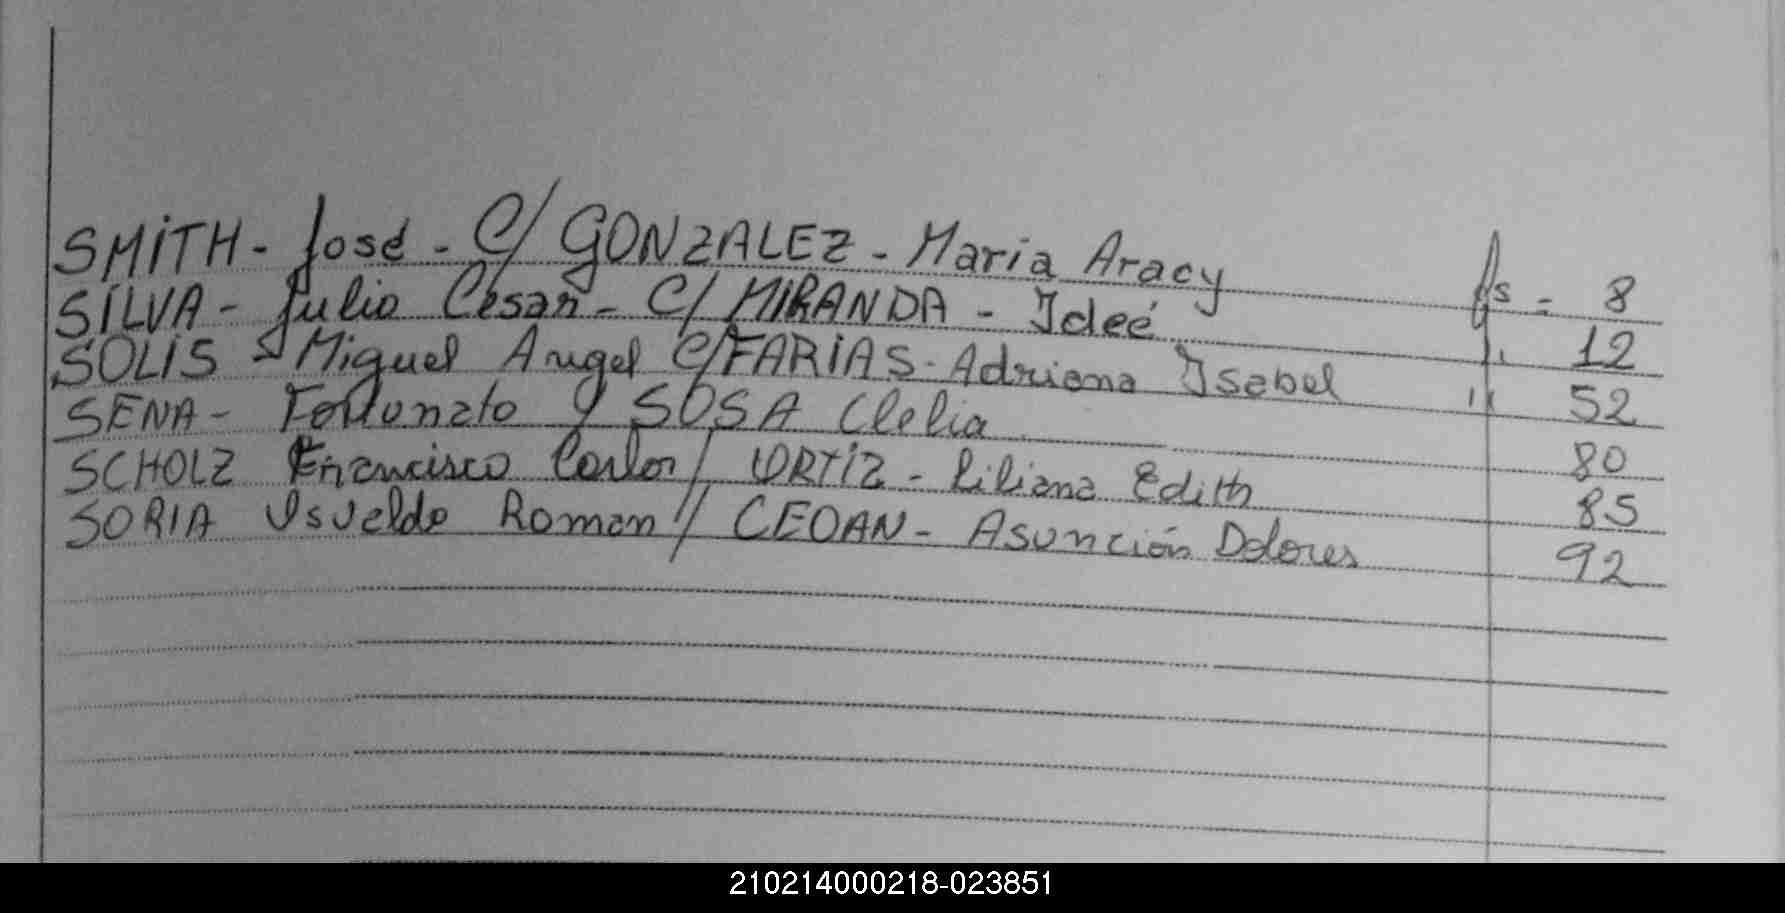 SMITH - José - C/ GONZALEZ - Maria Aracy fs - 8
SILVA - Julio César - C/ MIRANDA - Ideé " 12
SOLIS - Miguel Angel C/ FARIAS - Adriana Isabel " 52
SENA - Fortunato y SOSA Clelia 80
SCHOLZ Francisco Carlos / ORTIZ - Liliana Edith 85
SORIA Osvaldo Roman // CEOAN - Asunción Dolores 92
210214000218-023851